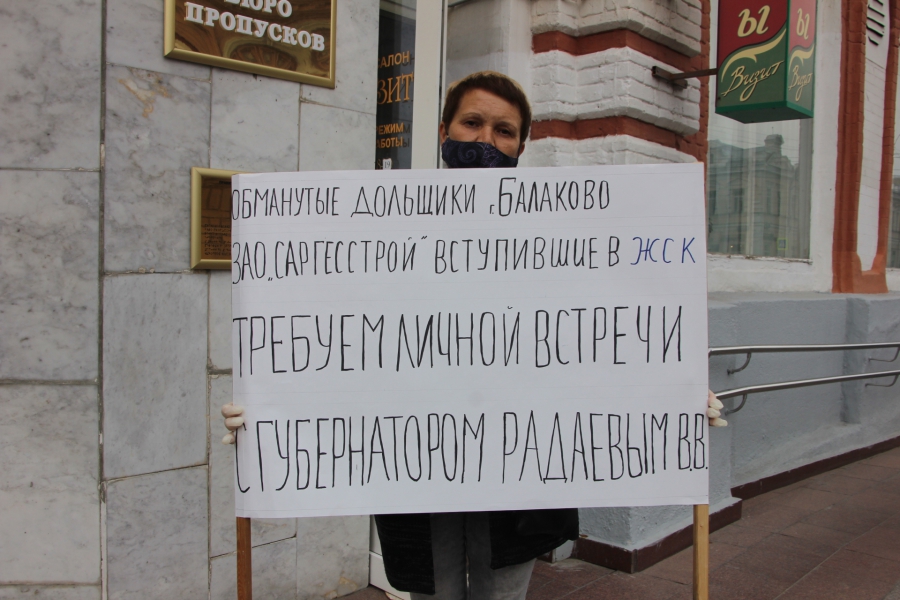 БЮРО
ПРОПУСКОВ
РЕЖИМ
РАБОТЫ
Ы
Визит
Ы
Визит
ОБМАНУТЫЕ ДОЛЬЩИКИ г. БАЛАКОВО
ЗАО „САРГЕССТРОЙ" ВСТУПИВШИЕ В ЖСК
ТРЕБУЕМ ЛИЧНОЙ ВСТРЕЧИ
С ГУБЕРНАТОРОМ РАДАЕВЫМ В.В.